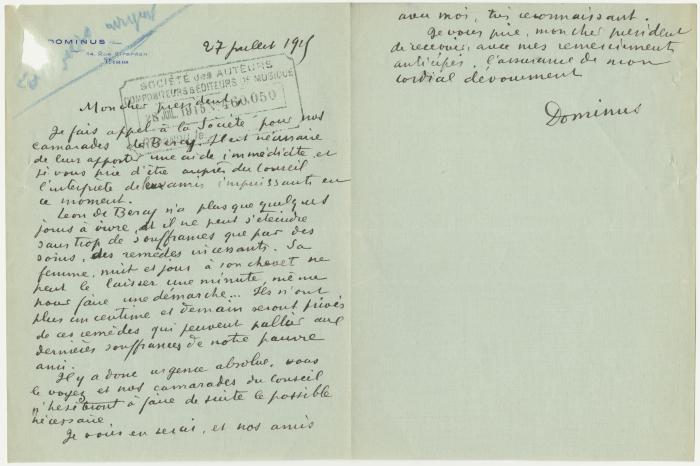 DOMINUS
14, Rue
27 juillet 1915
SOCIÉTÉ des AUTEURS
COMPOSITEURS & ÉDITEURS de MUSIQUE
28 JUIL. 1915 460,050
Mon cher président,
Je fais appel à la Société pour nos
camarades de Bercy. Il est nécessaire
de leur apporter une aide immédiate et
je vous prie d'être auprès du Conseil
l'interprète de leurs amis impuissants en
ce moment.
Léon de Bercy n'a plus que quelques
jours à vivre, et il ne peut s'éteindre
sans trop de souffrances que par des
soins, des remèdes incessants. Sa
femme, nuit et jour à son chevet ne
peut le laisser une minute, même
pour faire une démarche... Ils n'ont
plus un centime et demain seront privés
de ces remèdes qui peuvent pallier aux
dernières souffrances de notre pauvre
ami.
Il y a donc urgence absolue, vous
le voyez et nos camarades du conseil
n'hésiteront à faire de suite le possible
nécessaire.
Je vous en serai, et nos amis
avec moi, très reconnaissant.
Je vous prie, mon cher président
de recevoir, avec mes remerciements
anticipés, l'assurance de mon
cordial dévouement
Dominus